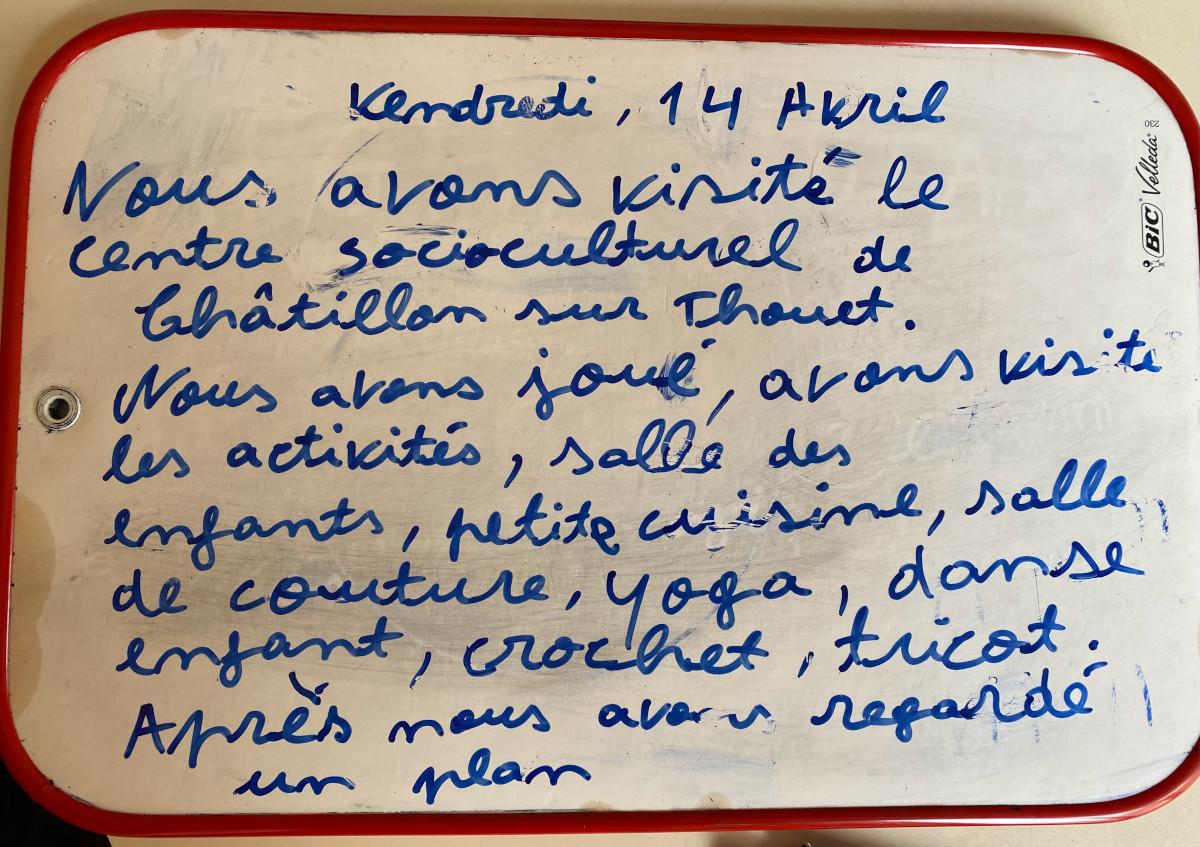 Vendredi, 14 Avril
Nous avons visité le
centre socioculturel de
Châtillon sur Thouet.
Nous avons joué, avons visité
les activités, salle des
enfants, petite cuisine, salle
de couture, yoga, danse
enfant, crochet, tricot.
Après nous avons regardé
un plan
BIC Velleda 230